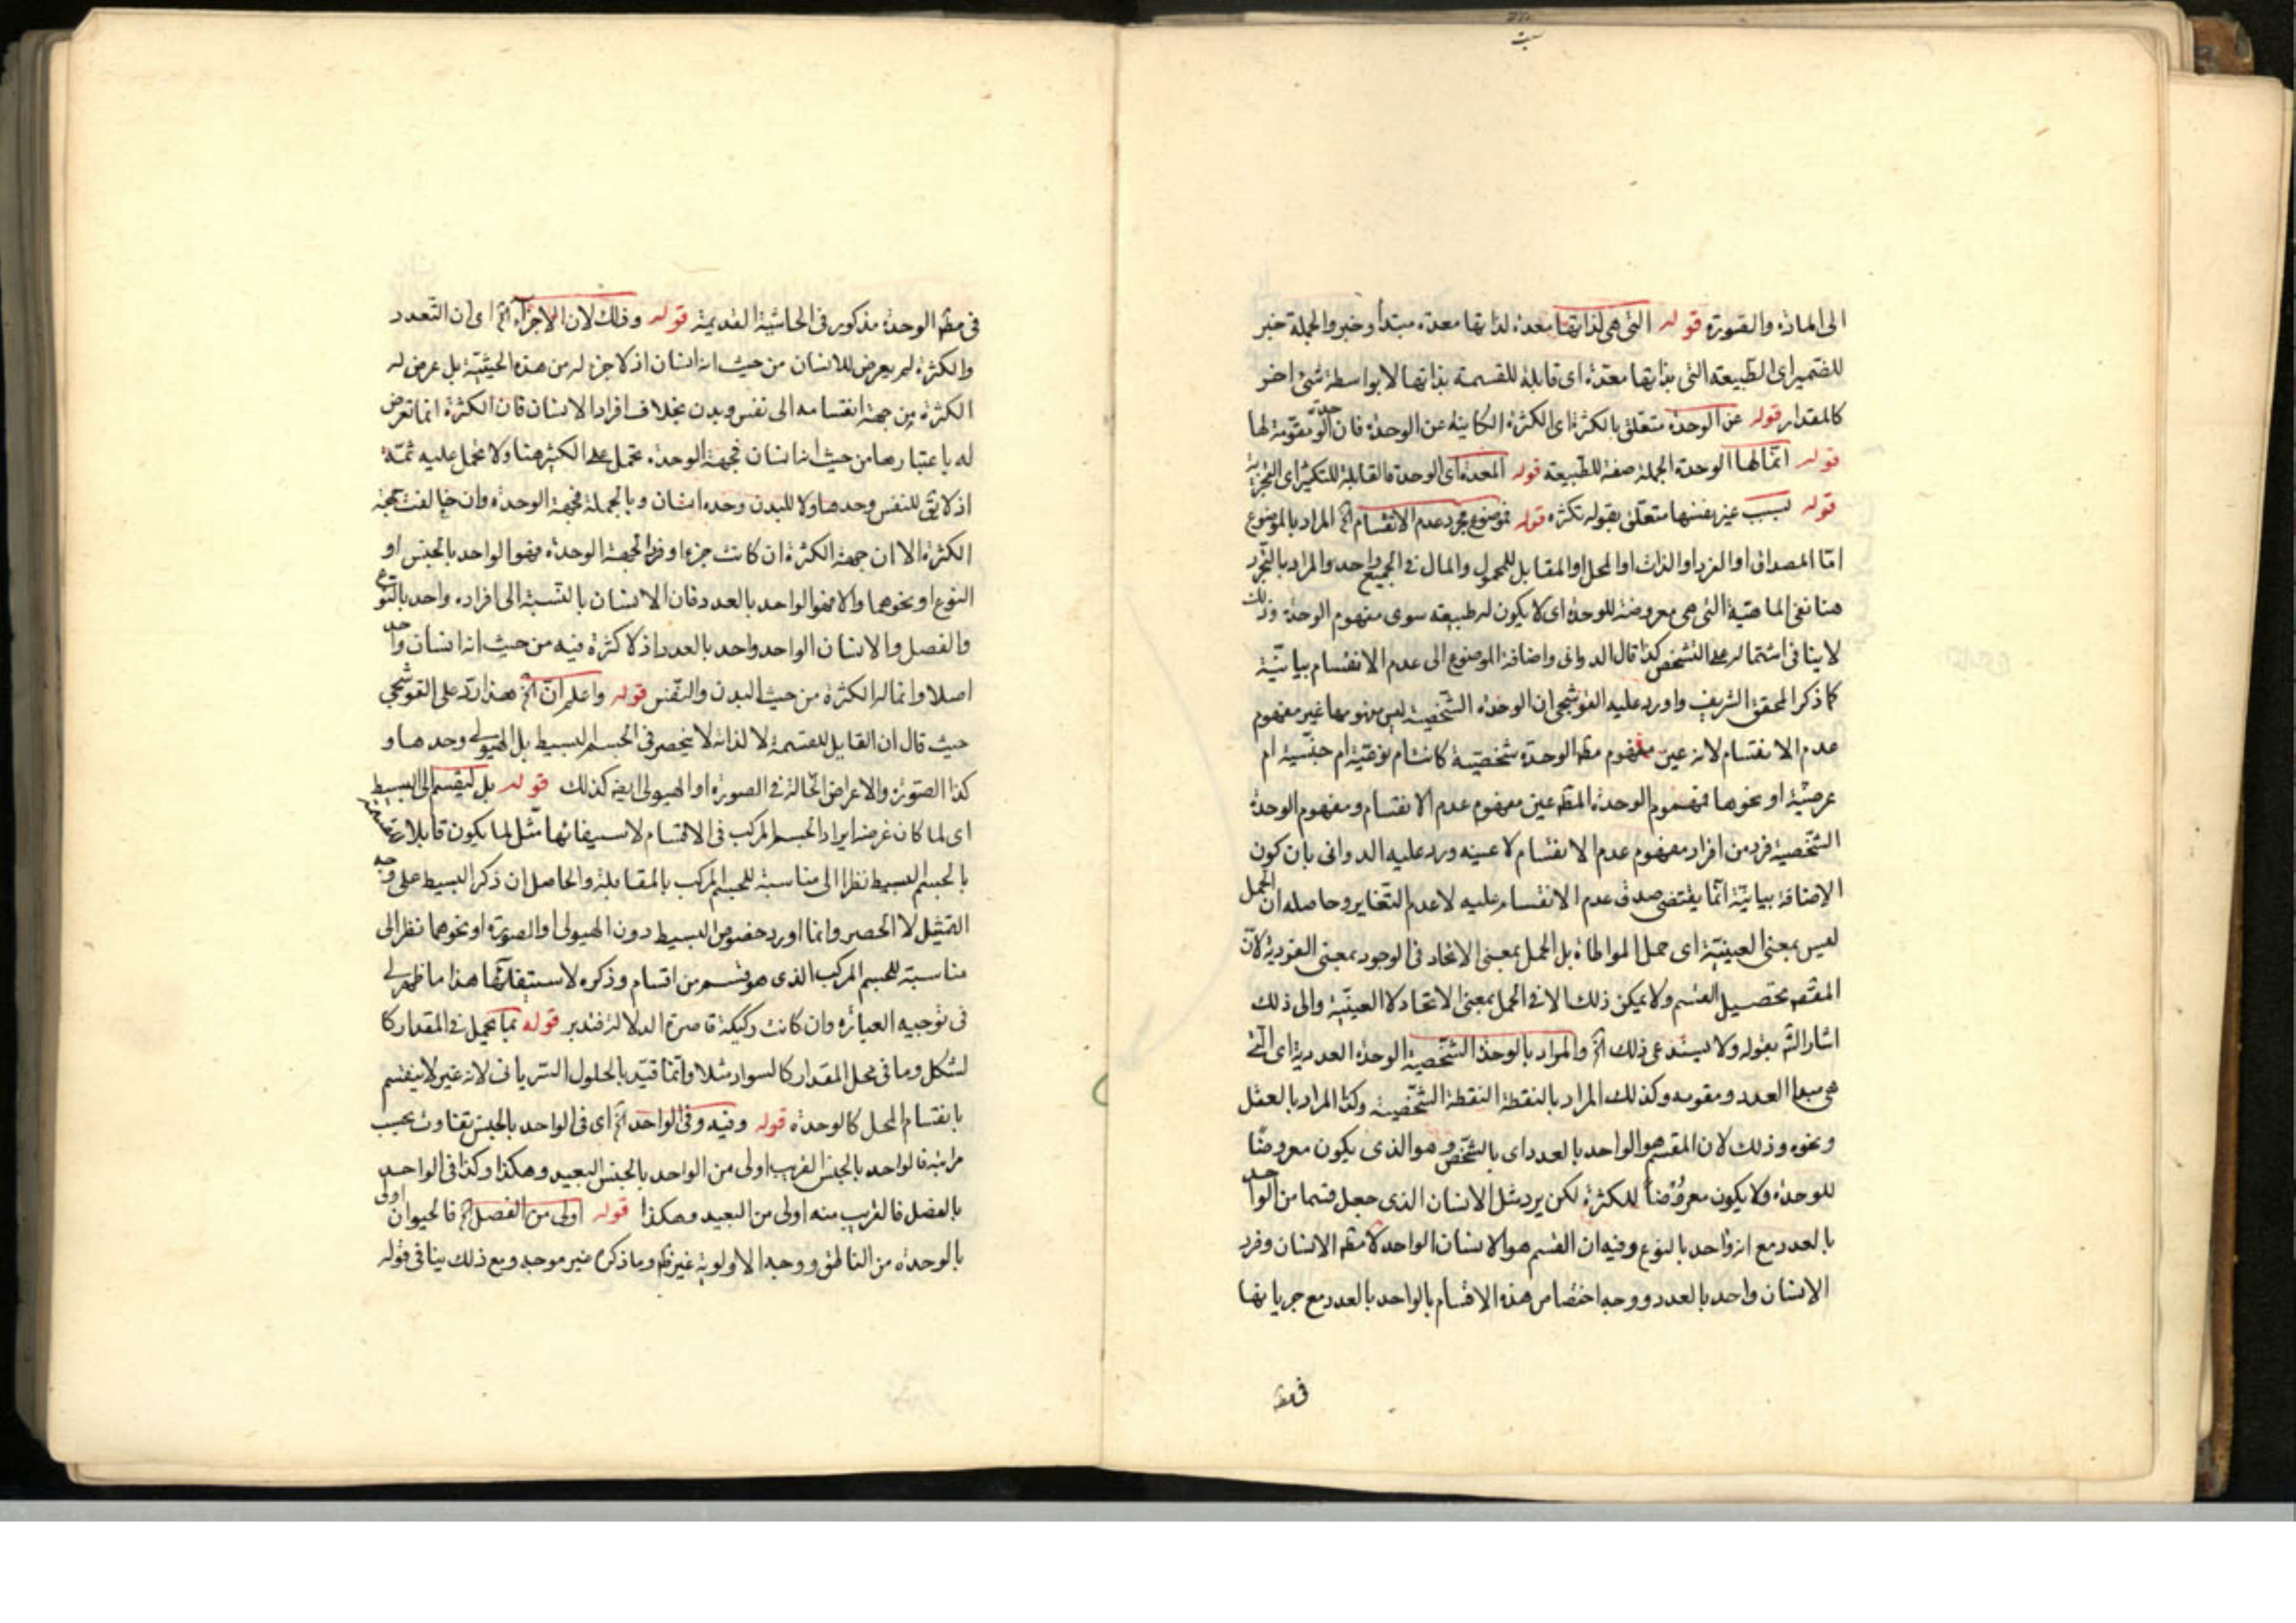 الى المادة والصورة قوله التى هى لذاتها معدة لذاتها معدة مبتدأ وخبر والجملة خبر
للضمير اى الطبيعة التى بذاتها معدة اى قابلة للقسمة بذاتها لا بواسطة شئ اخر
كالمقدار قوله عن الوحدة متعلق بالكثرة اى الكثرة الكاينة عن الوحدة فان الوحدة مقومة لها
قوله انما لها الوحدة الجملة صفة للطبيعة قوله المعدة اى الوحدة القابلة للتكثير اى التجزية
قوله لسبب غير نفسها متعلق بقوله تكثره قوله فموضوع مجرد عدم الانقسام الخ المراد بالموضوع
اما المصداق او الفرد او الذات او المحل او المقابل للمحمول والمال فى الجميع واحد والمراد بالتجرد
هنا نفى الماهية التى هى معروضة للوحدة اى لا يكون له طبيعة سوى مفهوم الوحدة وذلك
لا ينافى اشتماله على التشخص كذا قال الدوانى واضافة الموضوع الى عدم الانقسام بيانية
كما ذكر المحقق الشريف واورد عليه القوشجى ان الوحدة الشخصية ليس مفهومها غير مفهوم
عدم الانقسام لانه عين مفهوم مطـ الوحدة شخصية كانت ام نوعية ام جنسية ام
عرضية او نحوها فمفهوم الوحدة المطـ عين مفهوم عدم الانقسام ومفهوم الوحدة
الشخصية فرد من افراد مفهوم عدم الانقسام لا عينه ورد عليه الدوانى بان كون
الاضافة بيانية انما يقتضى صدق عدم الانقسام عليه لا عدم التغاير وحاصله ان الحمل
ليس بمعنى العينية اى حمل المواطاة بل الحمل بمعنى الاتحاد فى الوجود بمعنى الفردية لان
المقصـ تحصيل القسم ولا يمكن ذلك الا فى الحمل بمعنى الاتحاد لا العينية والى ذلك
اشار الشـ بقوله ولا يستدعى ذلك الخ والمراد بالوحدة الشخصية الوحدة العددية اى التى
هى مبدا العدد ومقومه وكذلك المراد بالنقطة النقطة الشخصية وكذا المراد بالعقل
ونحوه وذلك لان المقسم هو الواحد بالعدد اى بالشخص وهو الذى يكون معروضا
للوحدة ولا يكون معروضا للكثرة لكن يرد مثل الانسان الذى جعل قسما من الواحد
بالعدد مع انه واحد بالنوع وفيه ان القسم هو الانسان الواحد لا مطـ الانسان وفرد
الانسان واحد بالعدد ووجه اختصاص هذه الاقسام بالواحد بالعدد مع جريانها
فى مطـ
فى مطـ الوحدة مذكور فى الحاشية القديمة قوله وذلك لان الاجزآء الخ اى ان التعدد
والكثرة لم يعرض للانسان من حيث انه انسان اذ لا جزء له من هذه الحيثية بل عرض له
الكثرة من جهة انقسامه الى نفس وبدن بخلاف افراد الانسان فان الكثرة انما تعرض
له باعتبارها من حيث انها انسان فجهة الوحدة تحمل على الكثير هنا ولا تحمل عليه ثمة
اذ لا يق للنفس وحدها ولا للبدن وحده انسان وبالجملة فجهة الوحدة وان خالفت جهة
الكثرة الا ان جهة الكثرة ان كانت جزءا وفردا لجهة الوحدة فهو الواحد بالجنس او
النوع او نحوهما والا فهو الواحد بالعدد فان الانسان بالنسبة الى افراده واحد بالنوع
والفصل والانسان الواحد واحد بالعدد اذ لا كثرة فيه من حيث انه انسان واحد
اصلا وانما له الكثرة من حيث البدن والنفس قوله واعلم ان الخ هذا رد على القوشجى
حيث قال ان القابل للقسمة لا لذاته لا ينحصر فى الجسم البسيط بل الهيولى وحدها و
كذا الصورة والاعراض الحالة فى الصورة او الهيولى ايضـ كذلك قوله بل ليقسم الى البسيط
اى لما كان غرضه ايراد الجسم المركب فى الاقسام لاستيفائها مثل لما يكون قابلا للقسمة
بالجسم البسيط نظرا الى مناسبة للجسم المركب بالمقابلة والحاصل ان ذكر البسيط على وجه
التمثيل لا الحصر وانما اورد خصوص البسيط دون الهيولى او الصورة او نحوهما نظرا الى
مناسبة للجسم المركب الذى هو قسم من اقسام وذكره لاستيفائها هذا ما ظهر لى
فى توجيه العبارة وان كانت ركيكة قاصرة الدلالة فتدبر قوله بما يحمل فى المقدار كا
لشكل وما فى محل المقدار كالسواد مثلا وانما قيد بالحلول السريانى لانه غيره لا ينقسم
بانقسام المحل كالوحدة قوله وفيه وفى الواحد الخ اى فى الواحد بالجنس تفاوت بحسب
مراتبه فالواحد بالجنس القريب اولى من الواحد بالجنس البعيد وهكذا وكذا فى الواحد
بالفصل فالقريب منه اولى من البعيد وهكذا قوله اولى من الفصل الخ فالحيوان اولى
بالوحدة من الناطق ووجه الاولوية غير ظـ وما ذكره غير موجه ومع ذلك ينافى قوله